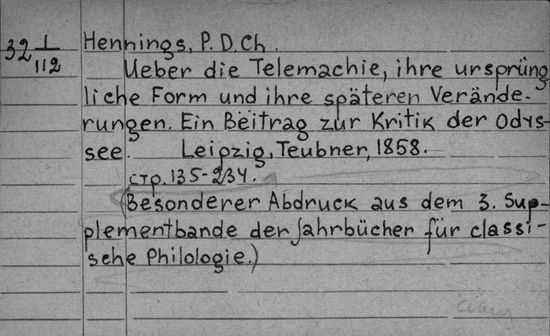 32 1/112 Hennings, P. D. Ch.
Ueber die Telemachie, ihre ursprüng
liche Form und ihre späteren Verände-
rungen. Ein Beitrag zur Kritik der Odys
see. Leipzig, Teubner, 1858.
стр. 135-234.
(Besonderer Abdruck aus dem 3. Sup-
plementbande der Jahrbücher für classi-
sche Philologie.)